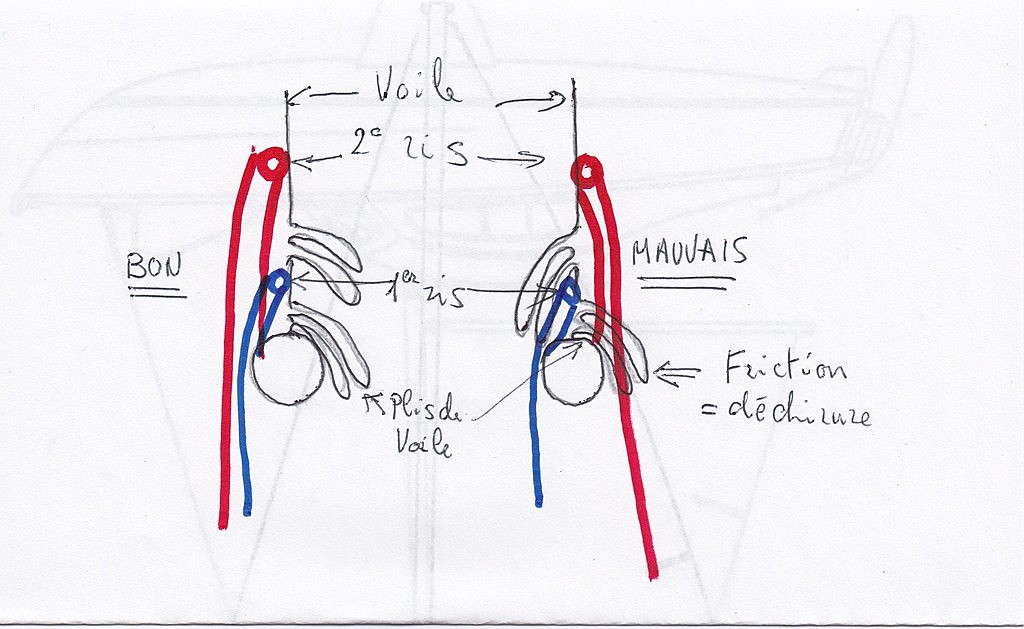 Voile
2e ris
BON
MAUVAIS
1er ris
Friction
= déchirure
Plis de
Voile